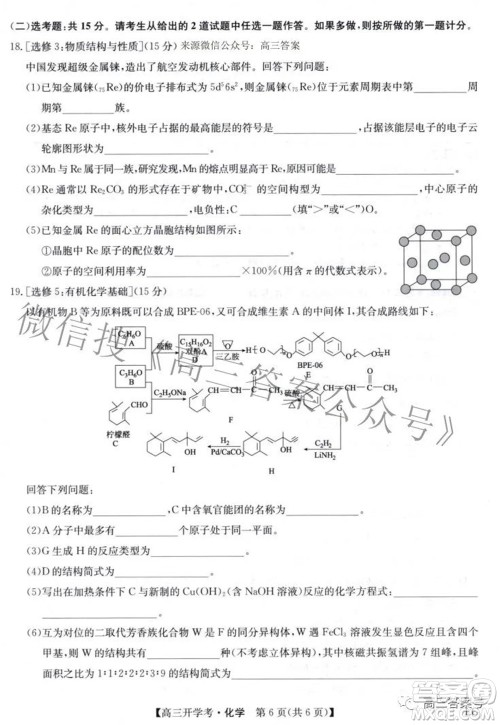 (二)选考题:共15分。请考生从给出的2道试题中任选一题作答。如果多做,则按所做的第一题计分。
18.[选修3:物质结构与性质](15分) 来源微信公众号:高三答案
中国发现超级金属铼,造出了航空发动机核心部件。回答下列问题:
(1)已知金属铼(₇₅Re)的价电子排布式为5d⁵6s²,则金属铼(₇₅Re)位于元素周期表中第
周期第 族。
(2)基态Re原子中,核外电子占据的最高能层的符号是 ,占据该能层电子的电子云
轮廓图形状为 。
(3)Mn与Re属于同一族,研究发现,Mn的熔点明显高于Re,原因可能是 。
(4)Re通常以Re₂CO₃的形式存在于矿物中,CO₃²⁻的空间构型为 ,中心原子的
杂化类型为 ,电负性:C (填“>”或“<”)O。
(5)已知金属Re的面心立方晶胞结构如图所示:
①晶胞中Re原子的配位数为 。
②原子的空间利用率为 ×100%(用含π的代数式表示)。
19.[选修5:有机化学基础](15分)
以有机物B等为原料既可以合成BPE-06,又可合成维生素A的中间体I,其合成路线如下:
A
硫酸
C₁₅H₁₆O₂
双酚A
D
O
三乙胺
H
O
O
O
O
H
BPE-06
E
C₃H₆O
B
CHO
柠檬醛
C
C₂H₅ONa
O
F
硫酸
O
G
C₂H₂
LiNH₂
OH
H
H₂
Pd/CaCO₃
OH
I
回答下列问题:
(1)B的名称为 ,C中含氧官能团的名称为 。
(2)A分子中最多有 个原子共平面。
(3)G生成H的反应类型为 。
(4)D的结构简式为 。
(5)写出在加热条件下C与新制的Cu(OH)₂(含NaOH溶液)反应的化学方程式:
。
(6)互为对位的二取代芳香族化合物W是F的同分异构体,W遇FeCl₃溶液显紫色且含有四个
甲基,则W有 种(不含立体异构),其中核磁共振氢谱为
1∶1∶2∶2∶2∶3∶9的结构简式为
【高三开学考·化学 第6页(共6页)】
微信搜《高三答案公众号》
高三答案号